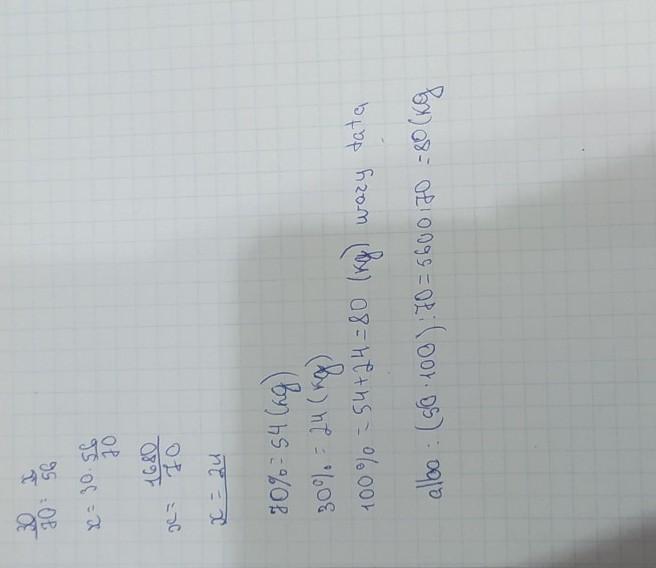 30/70 = x/56
x = 30·56/70
x = 1680/70
x = 24
70% = 54 (kg)
30% = 24 (kg)
100% = 54+24=80 (kg) waży tata
albo : (50·100):70=5600:70 =80(kg